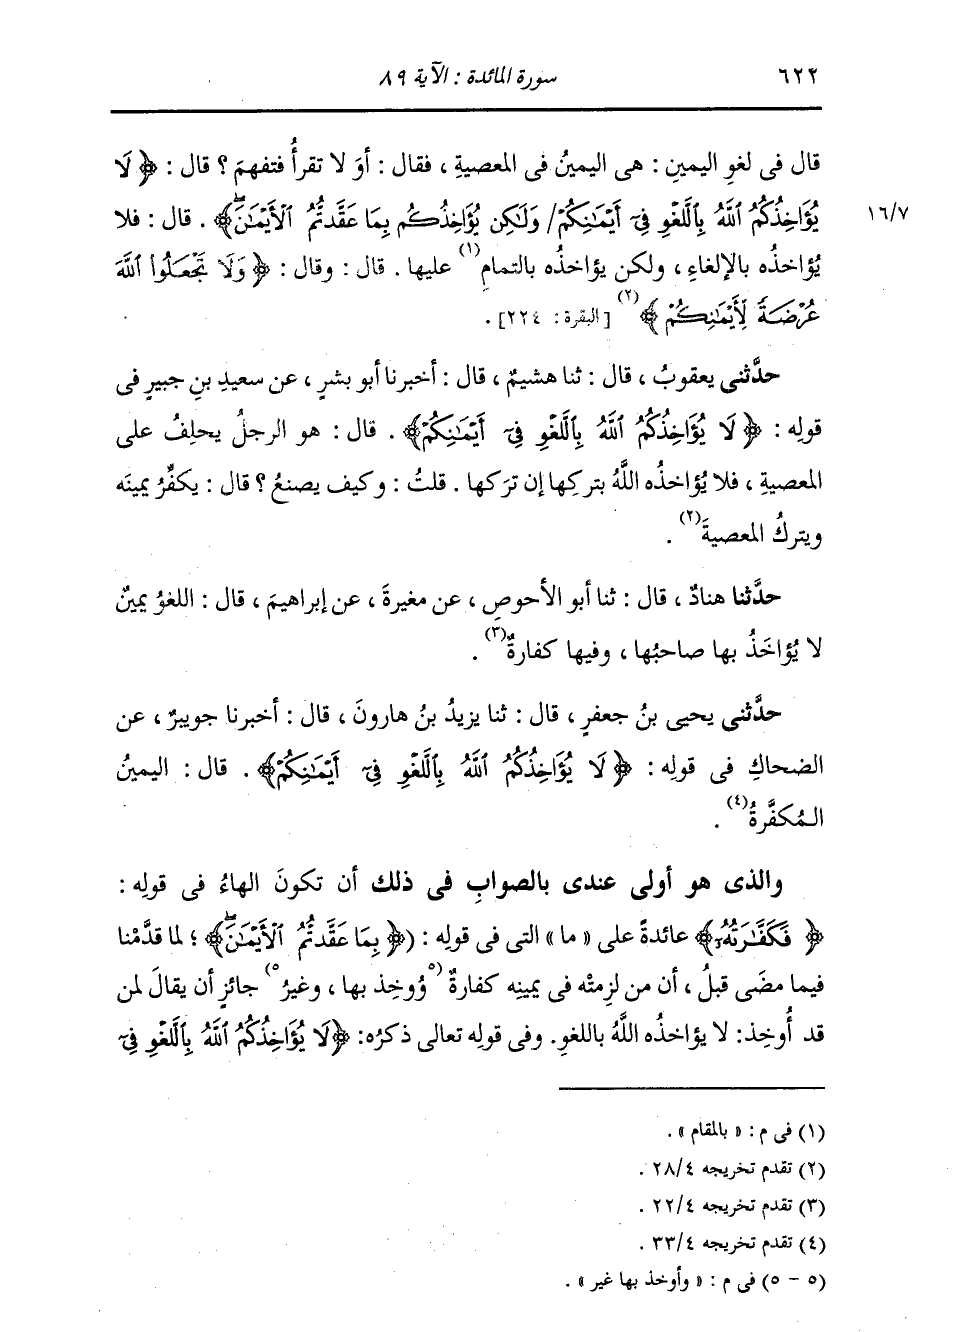 ٦٢٢ سورة المائدة : الآية ٨٩
قال فى لغوِ اليمينِ : هى اليمينُ فى المعصيةِ ، فقال : أوَ لا تقرأُ فتفهمَ ؟ قال : ﴿ لَا
يُؤَاخِذُكُمُ ٱللَّهُ بِٱللَّغْوِ فِىٓ أَيْمَـٰنِكُمْ/ وَلَـٰكِن يُؤَاخِذُكُم بِمَا عَقَّدتُّمُ ٱلْأَيْمَـٰنَۖ﴾ . قال : فلا ١٦/٧
يُؤاخذُه بالإلغاءِ ، ولكن يؤاخذُه بالتمامِ (١) عليها . قال : وقال : ﴿ وَلَا تَجْعَلُوا۟ ٱللَّهَ
عُرْضَةً لِّأَيْمَـٰنِكُمْ ﴾ (٢) [البقرة : ٢٢٤] .
حدَّثنى يعقوبُ ، قال : ثنا هشيمٌ ، قال : أخبرنا أبو بشرٍ ، عن سعيدِ بنِ جبيرٍ فى
قولِه : ﴿ لَا يُؤَاخِذُكُمُ ٱللَّهُ بِٱللَّغْوِ فِىٓ أَيْمَـٰنِكُمْ﴾ . قال : هو الرجلُ يحلِفُ على
المعصيةِ ، فلا يُؤاخذُه اللَّهُ بتركِها إن ترَكها . قلتُ : وكيف يصنعُ ؟ قال : يكفِّرُ يمينَه
ويتركُ المعصيةَ (٢) .
حدَّثنا هنادٌ ، قال : ثنا أبو الأحوصِ ، عن مغيرةَ ، عن إبراهيمَ ، قال : اللغوُ يمينٌ
لا يُؤاخَذُ بها صاحبُها ، وفيها كفارةٌ (٣) .
حدَّثنى يحيى بنُ جعفرٍ ، قال : ثنا يزيدُ بنُ هارونَ ، قال : أخبرنا جويبرٌ ، عن
الضحاكِ فى قولِه : ﴿ لَا يُؤَاخِذُكُمُ ٱللَّهُ بِٱللَّغْوِ فِىٓ أَيْمَـٰنِكُمْ﴾ . قال : اليمينُ
المُكفَّرةُ (٤) .
والذى هو أولى عندى بالصوابِ فى ذلك أن تكونَ الهاءُ فى قولِه :
﴿ فَكَفَّـٰرَتُهُۥٓ﴾ عائدةً على « ما » التى فى قولِه : (﴿ بِمَا عَقَّدتُّمُ ٱلْأَيْمَـٰنَۖ﴾ ؛ لما قدَّمْنا
فيما مضَى قبلُ ، أن من لزِمتْه فى يمينِه كفارةٌ (٥ وُوخِذ بها ، وغيرُ ٥) جائزٍ أن يقالَ لمن
قد أُوخِذ: لا يؤاخذُه اللَّهُ باللغوِ. وفى قولِه تعالى ذكرُه: ﴿لَا يُؤَاخِذُكُمُ ٱللَّهُ بِٱللَّغْوِ فِىٓ
(١) فى م : « بالمقام » .
(٢) تقدم تخريجه ٢٨/٤ .
(٣) تقدم تخريجه ٢٢/٤ .
(٤) تقدم تخريجه ٣٣/٤ .
(٥ - ٥) فى م : « وأوخذ بها غير » .